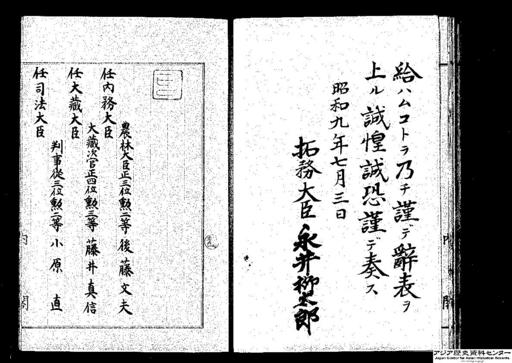 給ハムコトヲ乃チ謹デ辭表ヲ
上ル誠惶誠恐謹デ奏ス
昭和九年七月三日
拓務大臣永井柳太郎
任内務大臣
農林大臣正三位勲二等後藤文夫
任大藏大臣
大藏次官正四位勲三等藤井真信
任司法大臣
判事從三位勲二等小原直
内閣
内閣
アジア歴史資料センター
Japan Center for Asian Historical Records